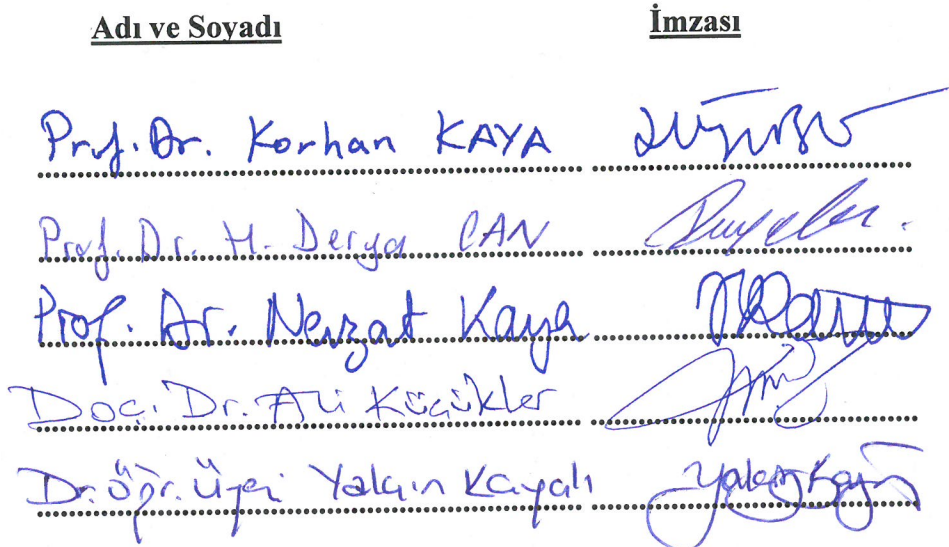 Adı ve Soyadı İmzası
Prof. Dr. Korhan KAYA
Prof. Dr. H. Derya CAN
Prof. Dr. Nevzat Kaya
Doç. Dr. Ali Küçükler
Dr. Öğr. Üyesi Yalçın Kayalı